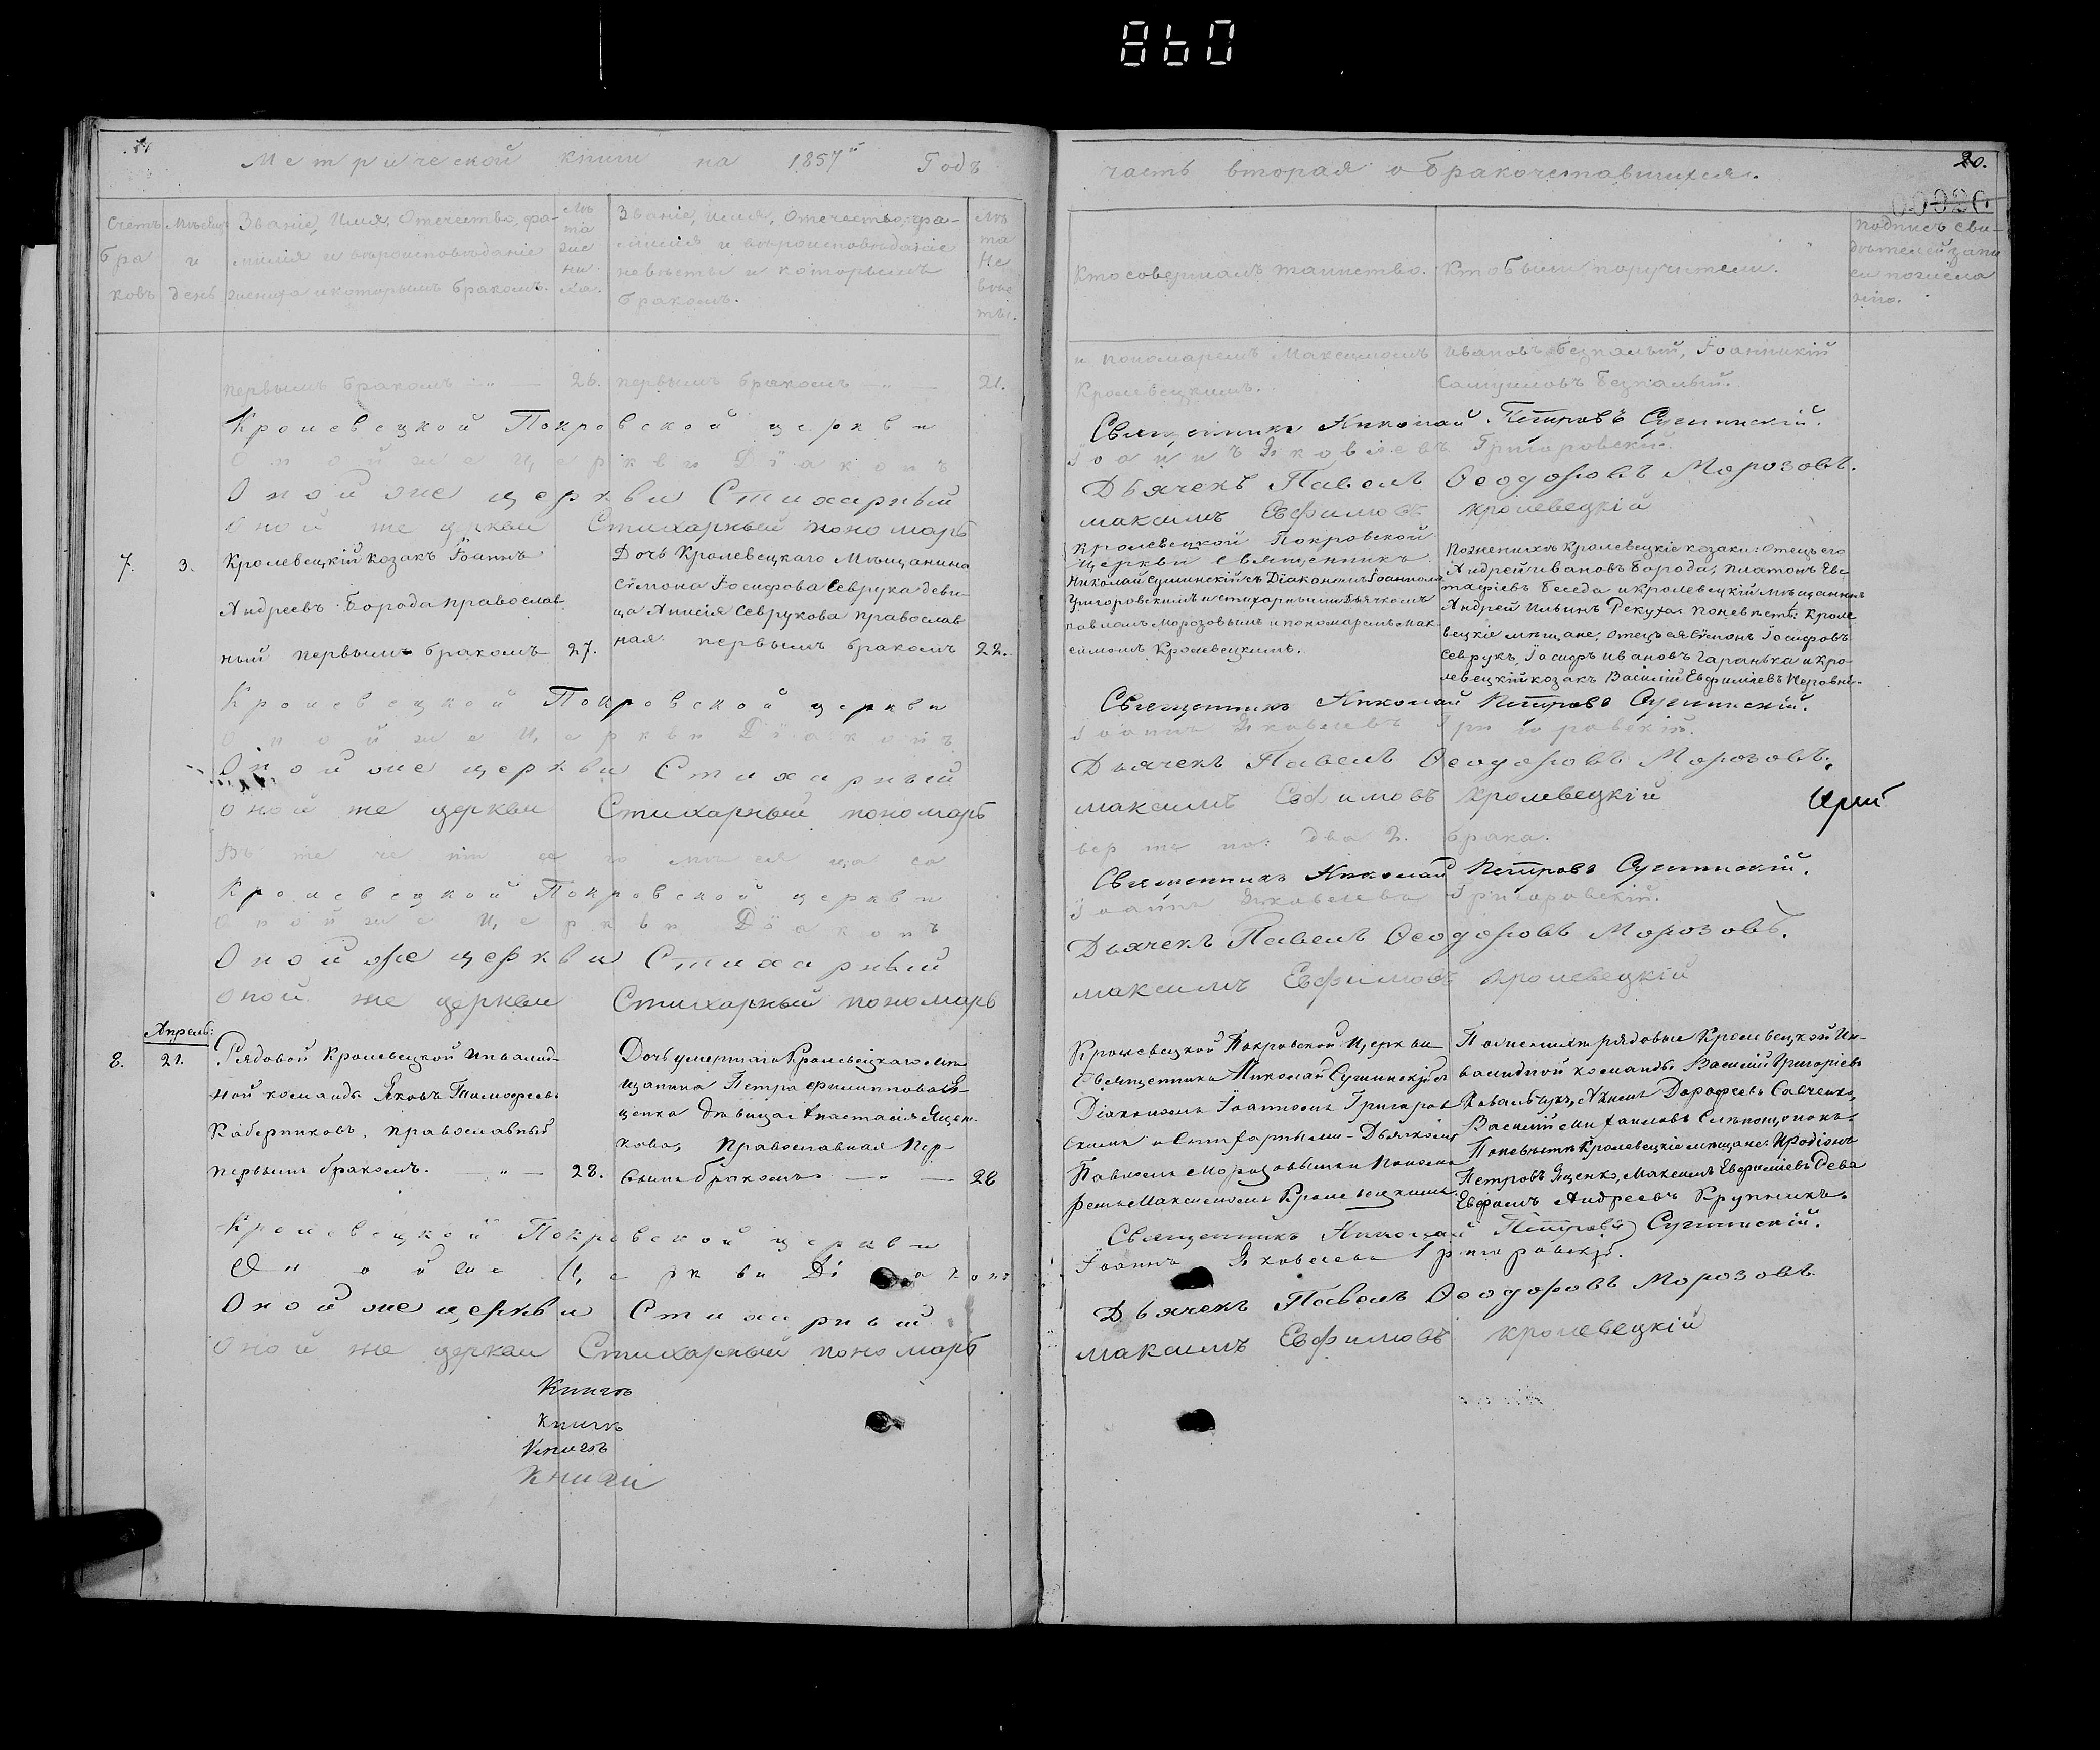 860
Метрической книги на 1857й Годъ
часть вторая о бракочетавшихся.
20.
Счетъ браковъ
Мѣсяцъ и день
Званіе, Имя, Отечество, фамилія и вѣроисповѣданіе жениха и которымъ бракомъ.
Лѣта жениха.
Званіе, имя, отечество, фамилія и вѣроисповѣданіе невѣсты и которымъ бракомъ.
Лѣта Невѣсты.
Кто совершалъ таинство.
Кто были поручители.
подпись свидѣтелей
первымъ бракомъ 26. первымъ бракомъ 21.
и пономаремъ Максимомъ
Кролевецкимъ.
Ивановъ Безпалый, Іоанникій
Самуиловъ Безпалый.
Кролевецкой Покровской церкви Священникъ Николай Петровъ Сушинскій.
Оной же Церкви Діаконъ Іоаннъ Яковлевъ Григоровскій.
Оной же церкви Стихарный Дьячекъ Павелъ Ѳеодоровъ Морозовъ.
Оной же церкви Стихарный пономарь максимъ Евфимовъ кролевецкій
7.
3.
Кролевецкій козакъ Іоаннъ
Андреевъ Борода православ
ный первымъ бракомъ
27.
Дочь Кролевецкаго Мѣщанина
Сѵмона Іосифова Севрука деви-
ца Аннія Севрукова православ
ная первымъ бракомъ
22.
Кролевецкой Покровской
Церкви священникъ
Николай Сушинскій съ Діакономъ Іоанномъ
Григоровскимъ и стихарными Дьячкомъ
павломъ Морозовымъ и пономаремъ Мак-
симомъ Кролевецкимъ.
По женихѣ Кролевецкіе козаки: Отецъ его
Андрей ивановъ Борода, платонъ Евс
тафіевъ Беседа и кролевецкій мѣщанинъ
Андрей Ильинъ Рекуха. по невѣстѣ: Кроле
вецкіе мѣщане, отецъ ея Сѵмонъ Іосифовъ
Севрукъ, Іосифъ ивановъ Гаранька и кро-
левецкій козакъ Василій Евфиміевъ
Кролевецкой Покровской церкви Священникъ Николай Петровъ Сушинскій.
Оной же Церкви Діаконъ Іоаннъ Яковлевъ Григоровскій.
Оной же церкви Стихарный Дьячекъ Павелъ Ѳеодоровъ Морозовъ.
Оной же церкви Стихарный пономарь максимъ Евфимовъ кролевецкій
Въ теченіи сего мѣсяца два 2. брака.
Кролевецкой Покровской церкви Священникъ Николай Петровъ Сушинскій.
Оной же Церкви Діаконъ Іоаннъ Яковлевъ Григоровскій.
Оной же церкви Стихарный Дьячекъ Павелъ Ѳеодоровъ Морозовъ.
Оной же церкви Стихарный пономарь максимъ Евфимовъ кролевецкій
Апрель:
8.
21.
Рядовой Кролевецкой Инвалид-
ной команды Яковъ Тимофеевъ
Каберниковъ, православный
первымъ бракомъ.
28.
Дочь умершаго Кролевецкаго мѣ-
щанина Петра Филиппова Я-
щенка дѣвица Анастасія Ящен-
кова, Православная Пер-
вымъ бракомъ
26
Кролевецкой Покровской Церкви
Священникъ Николай Сушинскій съ
Діакономъ Іоанномъ Григоров
скимъ и Стихарными Дьячкомъ
Павломъ Морозовымъ и Понома
ремъ Максимомъ Кролевецкимъ.
По женихѣ рядовые Кролевецкой Ин-
валидной команды Василій Григоріевъ
Ковальчукъ, Дорофеевъ Савченко,
Василій
По невѣстѣ Кролевецкіе мѣщане: Иродіонъ
Петровъ Ященко, Максимъ Евфиміевъ Рева
Ефремъ Андреевъ Крупникъ.
Кролевецкой Покровской церкви Священникъ Николай Петровъ Сушинскій.
Оной же Церкви Діаконъ Іоаннъ Яковлевъ Григоровскій.
Оной же церкви Стихарный Дьячекъ Павелъ Ѳеодоровъ Морозовъ
Оной же церкви Стихарный пономарь максимъ Евфимовъ кролевецкій
Книгѣ
Книгѣ
Книгѣ
Книги